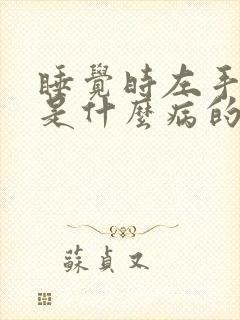 睡覺時左手
是什麼病的
蘇貞又